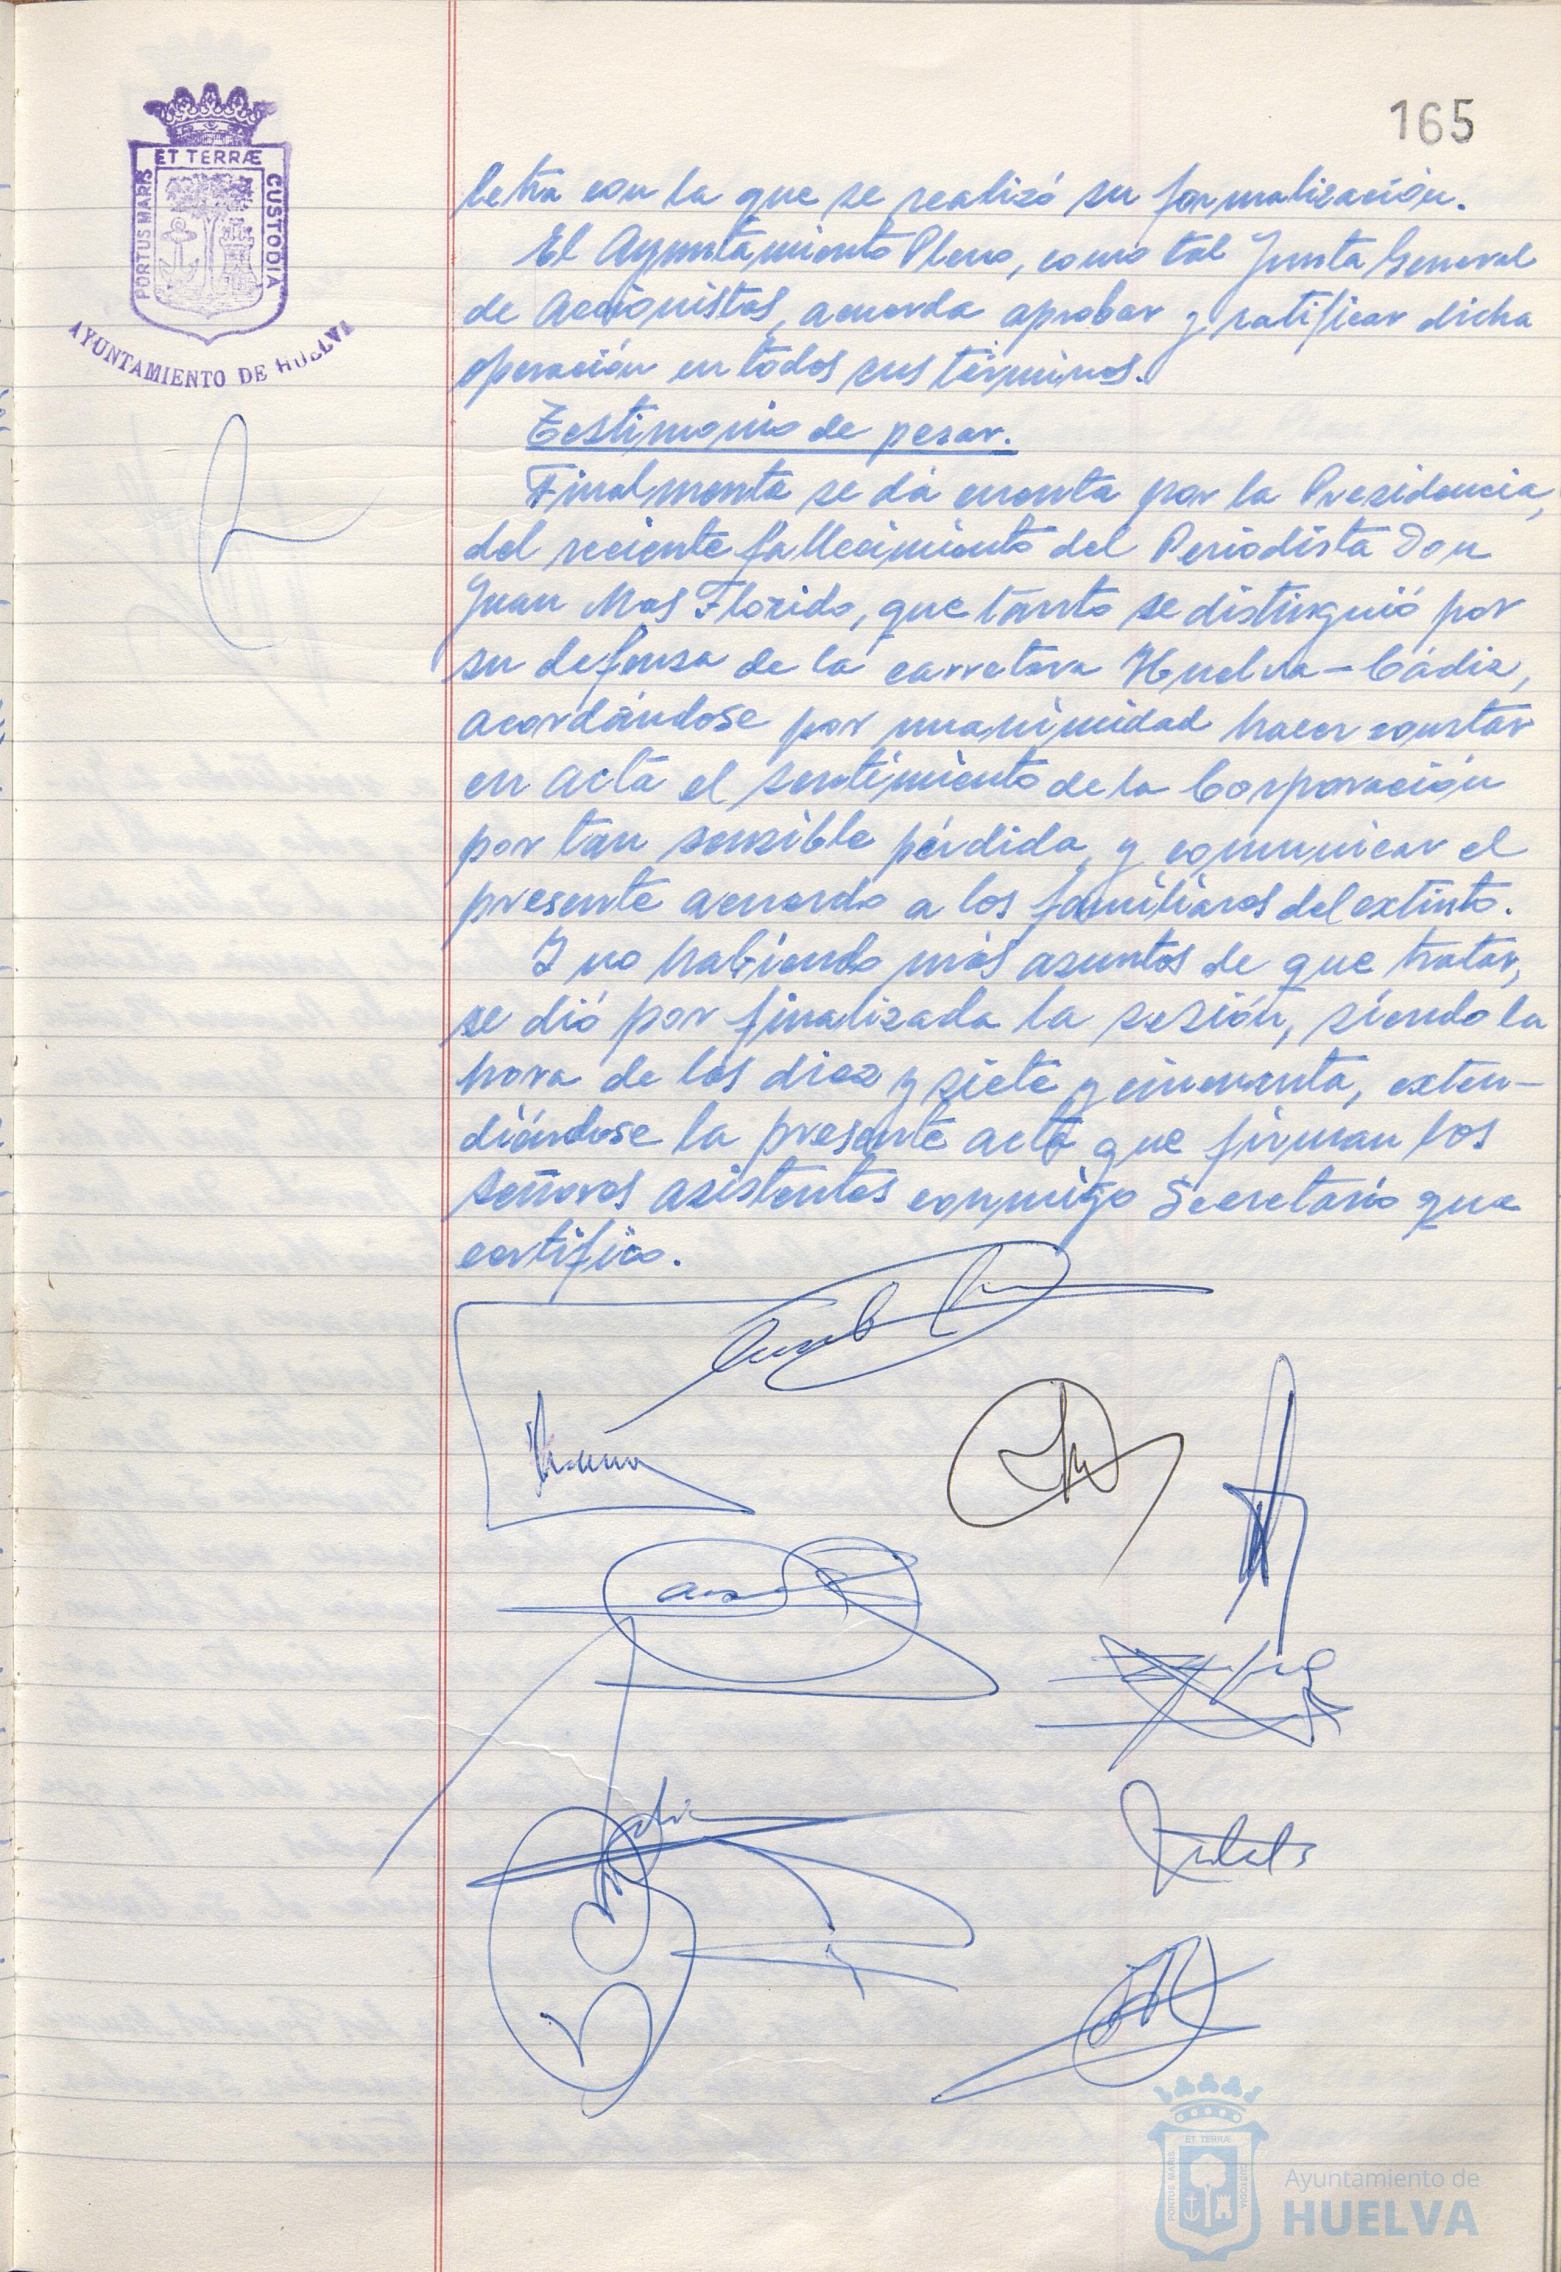 165
ET TERRÆ
PORTUS MARIS
CUSTODIA
AYUNTAMIENTO DE HUELVA
letra con la que se realizó su formalización.
El Ayuntamiento Pleno, como tal Junta General
de Accionistas, acuerda aprobar y ratificar dicha
operación en todos sus términos.
Testimonio de pesar.
Finalmente se dá cuenta por la Presidencia,
del reciente fallecimiento del Periodista Don
Juan Mas Florido, que tanto se distinguió por
su defensa de la carretera Huelva-Cádiz,
acordándose por unanimidad hacer constar
en acta el sentimiento de la Corporación
por tan sensible pérdida, y comunicar el
presente acuerdo a los familiares del extinto.
Y no habiendo más asuntos de que tratar,
se dió por finalizada la sesión, siendo la
hora de las diez y siete y cincuenta, exten-
diéndose la presente acta que firman los
señores asistentes conmigo Secretario que
certifico.
ET TERRÆ
PORTUS MARIS
CUSTODIA
Ayuntamiento de
HUELVA